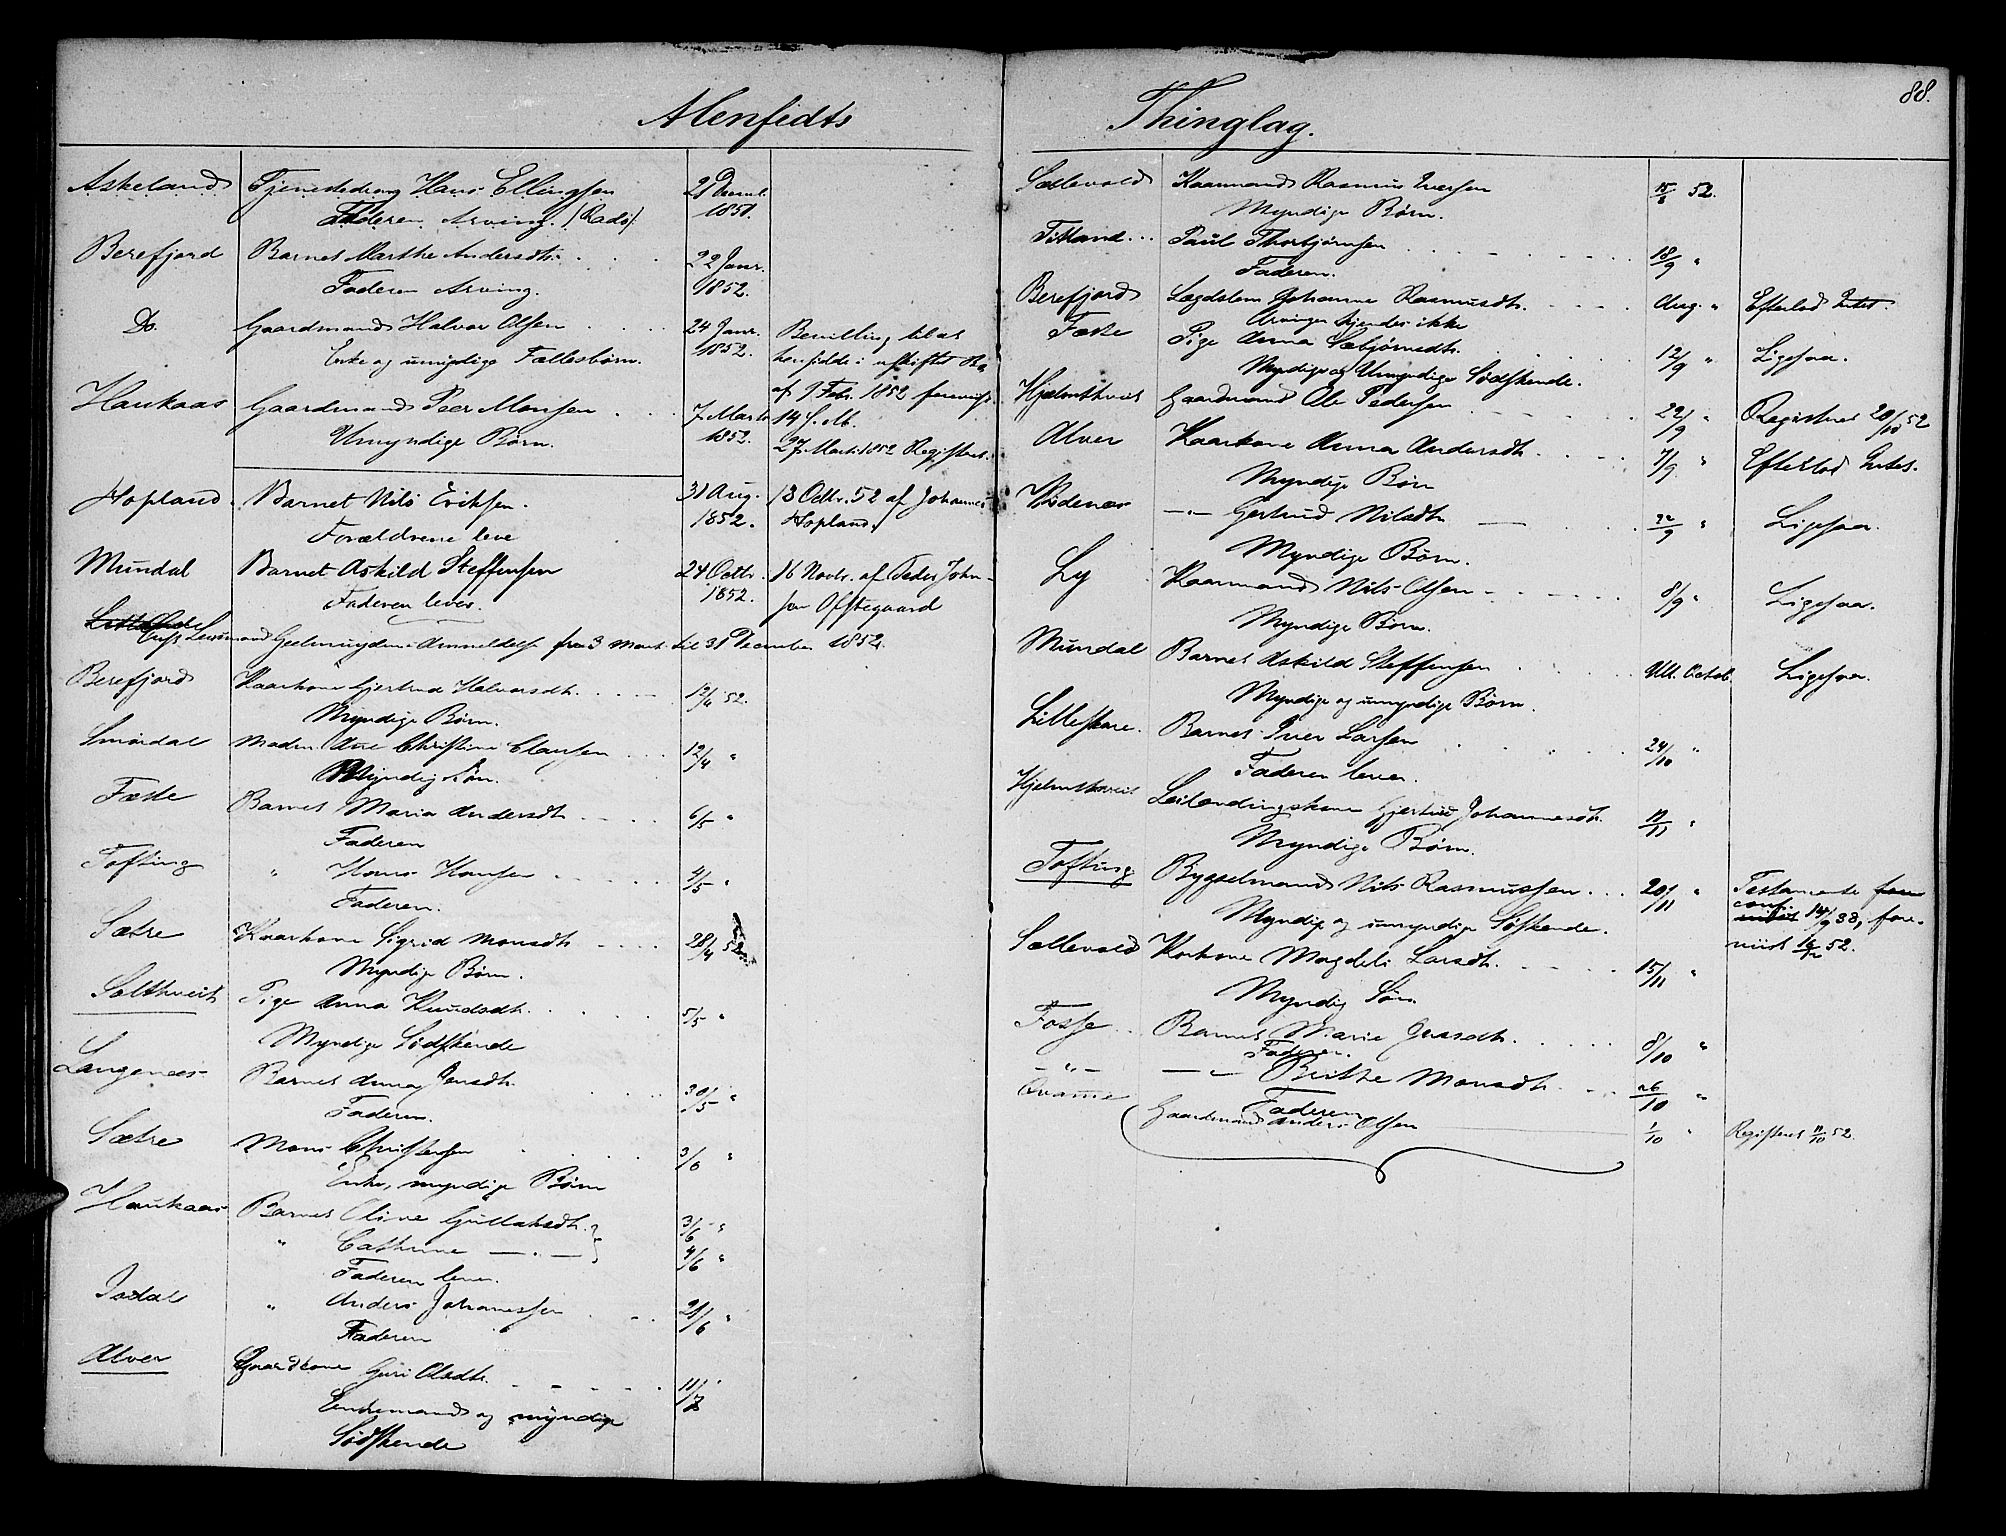 88.
Alenfidts Thinglag.
Askeland Tjenestedreng Hans Ellingsen 21 Decemb.
Faderen Arving. (Radø). 1851.
Berefjord Barnet Marthe Andersdtr. 22 Janr.
Faderen Arving. 1852.
Do. Gaardmand Halvor Olsen 24 Janr. Bevilling til at
Enke og umyndige Fællesbørn. 1852. hensidde i uskiftet Bo
af 9 Febr. 1852 foreviist
Haukaas Gaardmand Peer Monsen 7 Marts 14 s. M.
Umyndige Børn. 1852. 27 Marts 1852 Registeret.
Hopland. Barnet Nils Eriksen. 31 Aug. 18 Octbr. 52 af Johannes
Forældrene leve 1852. Hopland.
Mundal Barnet Askild Steffensen 24 Octbr. 16 Novbr. af Peder John-
Faderen lever. 1852. sen Ofstegaard
Lensmand Gjelmuydens Anmeldelse fra 3 Marts til 31 December 1852.
Berefjord Kaarkone Gjertrud Halvorsdtr. 12/4 52.
Myndige Børn.
Smørdal Madm. Ane Christine Clausen 12/4 "
Myndig Søn.
Fæste Barnet Maria Andersdtr. 6/5 "
Faderen
Tofting " Hans Hansen 4/5 "
Faderen.
Sætre Kaarkone Sigrid Monsdtr. 28/4 52
Myndige Børn.
Solthveit Pige Anna Knudsdtr. 5/5 "
Myndige Sødskende
Langenæs Barnet Anna Jensdtr. 30/5 "
Faderen.
Sætre Mons Christensen 3/6 "
Enke, myndige Børn
Haukaas Barnet Oline Gullaksdtr. 3/6 "
" Cathrine — " — 4/6 "
Faderen lever.
Isdal " Anders Johannessen 21/6 "
Faderen
Alver Gaardkone Guri Olsdtr. 11/7 "
Enkemand og myndige
Sødskende
Sellevold Kaarmand Rasmus Iversen 15/8 52.
Myndige Børn.
Titland... Paul Thorbjørnsen 18/9 "
Faderen.
Berefjord Lægdslem Johanne Rasmusdtr. Aug. " Efterlod Intet.
Arvinger kjendes ikke
Fæste Pige Anna Sæbjørnsdtr. 12/9 " Ligesaa.
Myndige og Umyndige Sødskende.
Hjelmthveit Gaardmand Ole Pedersen 22/9 " Registreret 20/10 52
Alver Kaarkone Anna Andersdtr. 7/9 " Efterlod Intet.
Myndige Børn
— " — Gertrud Nilsdtr. 22/9 " Ligesaa.
Myndige Børn.
Ly Kaarmand Nils Olsen 8/9 " Ligesaa.
Myndige Børn.
Mundal Barnet Askild Steffensen Ult. Octob. Ligesaa.
Myndige og umyndige Børn.
Lilleskare. Barnet Iver Larsen 24/10 "
Faderen lever.
Hjelmthveit Leilændingskone Gjertrud Johannesdtr. 11/11 "
Myndige Børn.
Tofting Bygselmand Nils Rasmussen... 20/11 " Testamente
Myndige og umyndige Sødskende. conf. 14/9 38, fore-
viist 52.
Sellevold Korkone Magdeli Larsdtr. 15/11 "
Myndig Søn
Fosse Barnet Marie Jensdtr. 8/10 "
Faderen.
— " — — " — Birthe Monsdtr. 26/10 "
Faderen
Qvamme Gaardmand Anders Olsen 1/10 " Registeret 11/10 52.